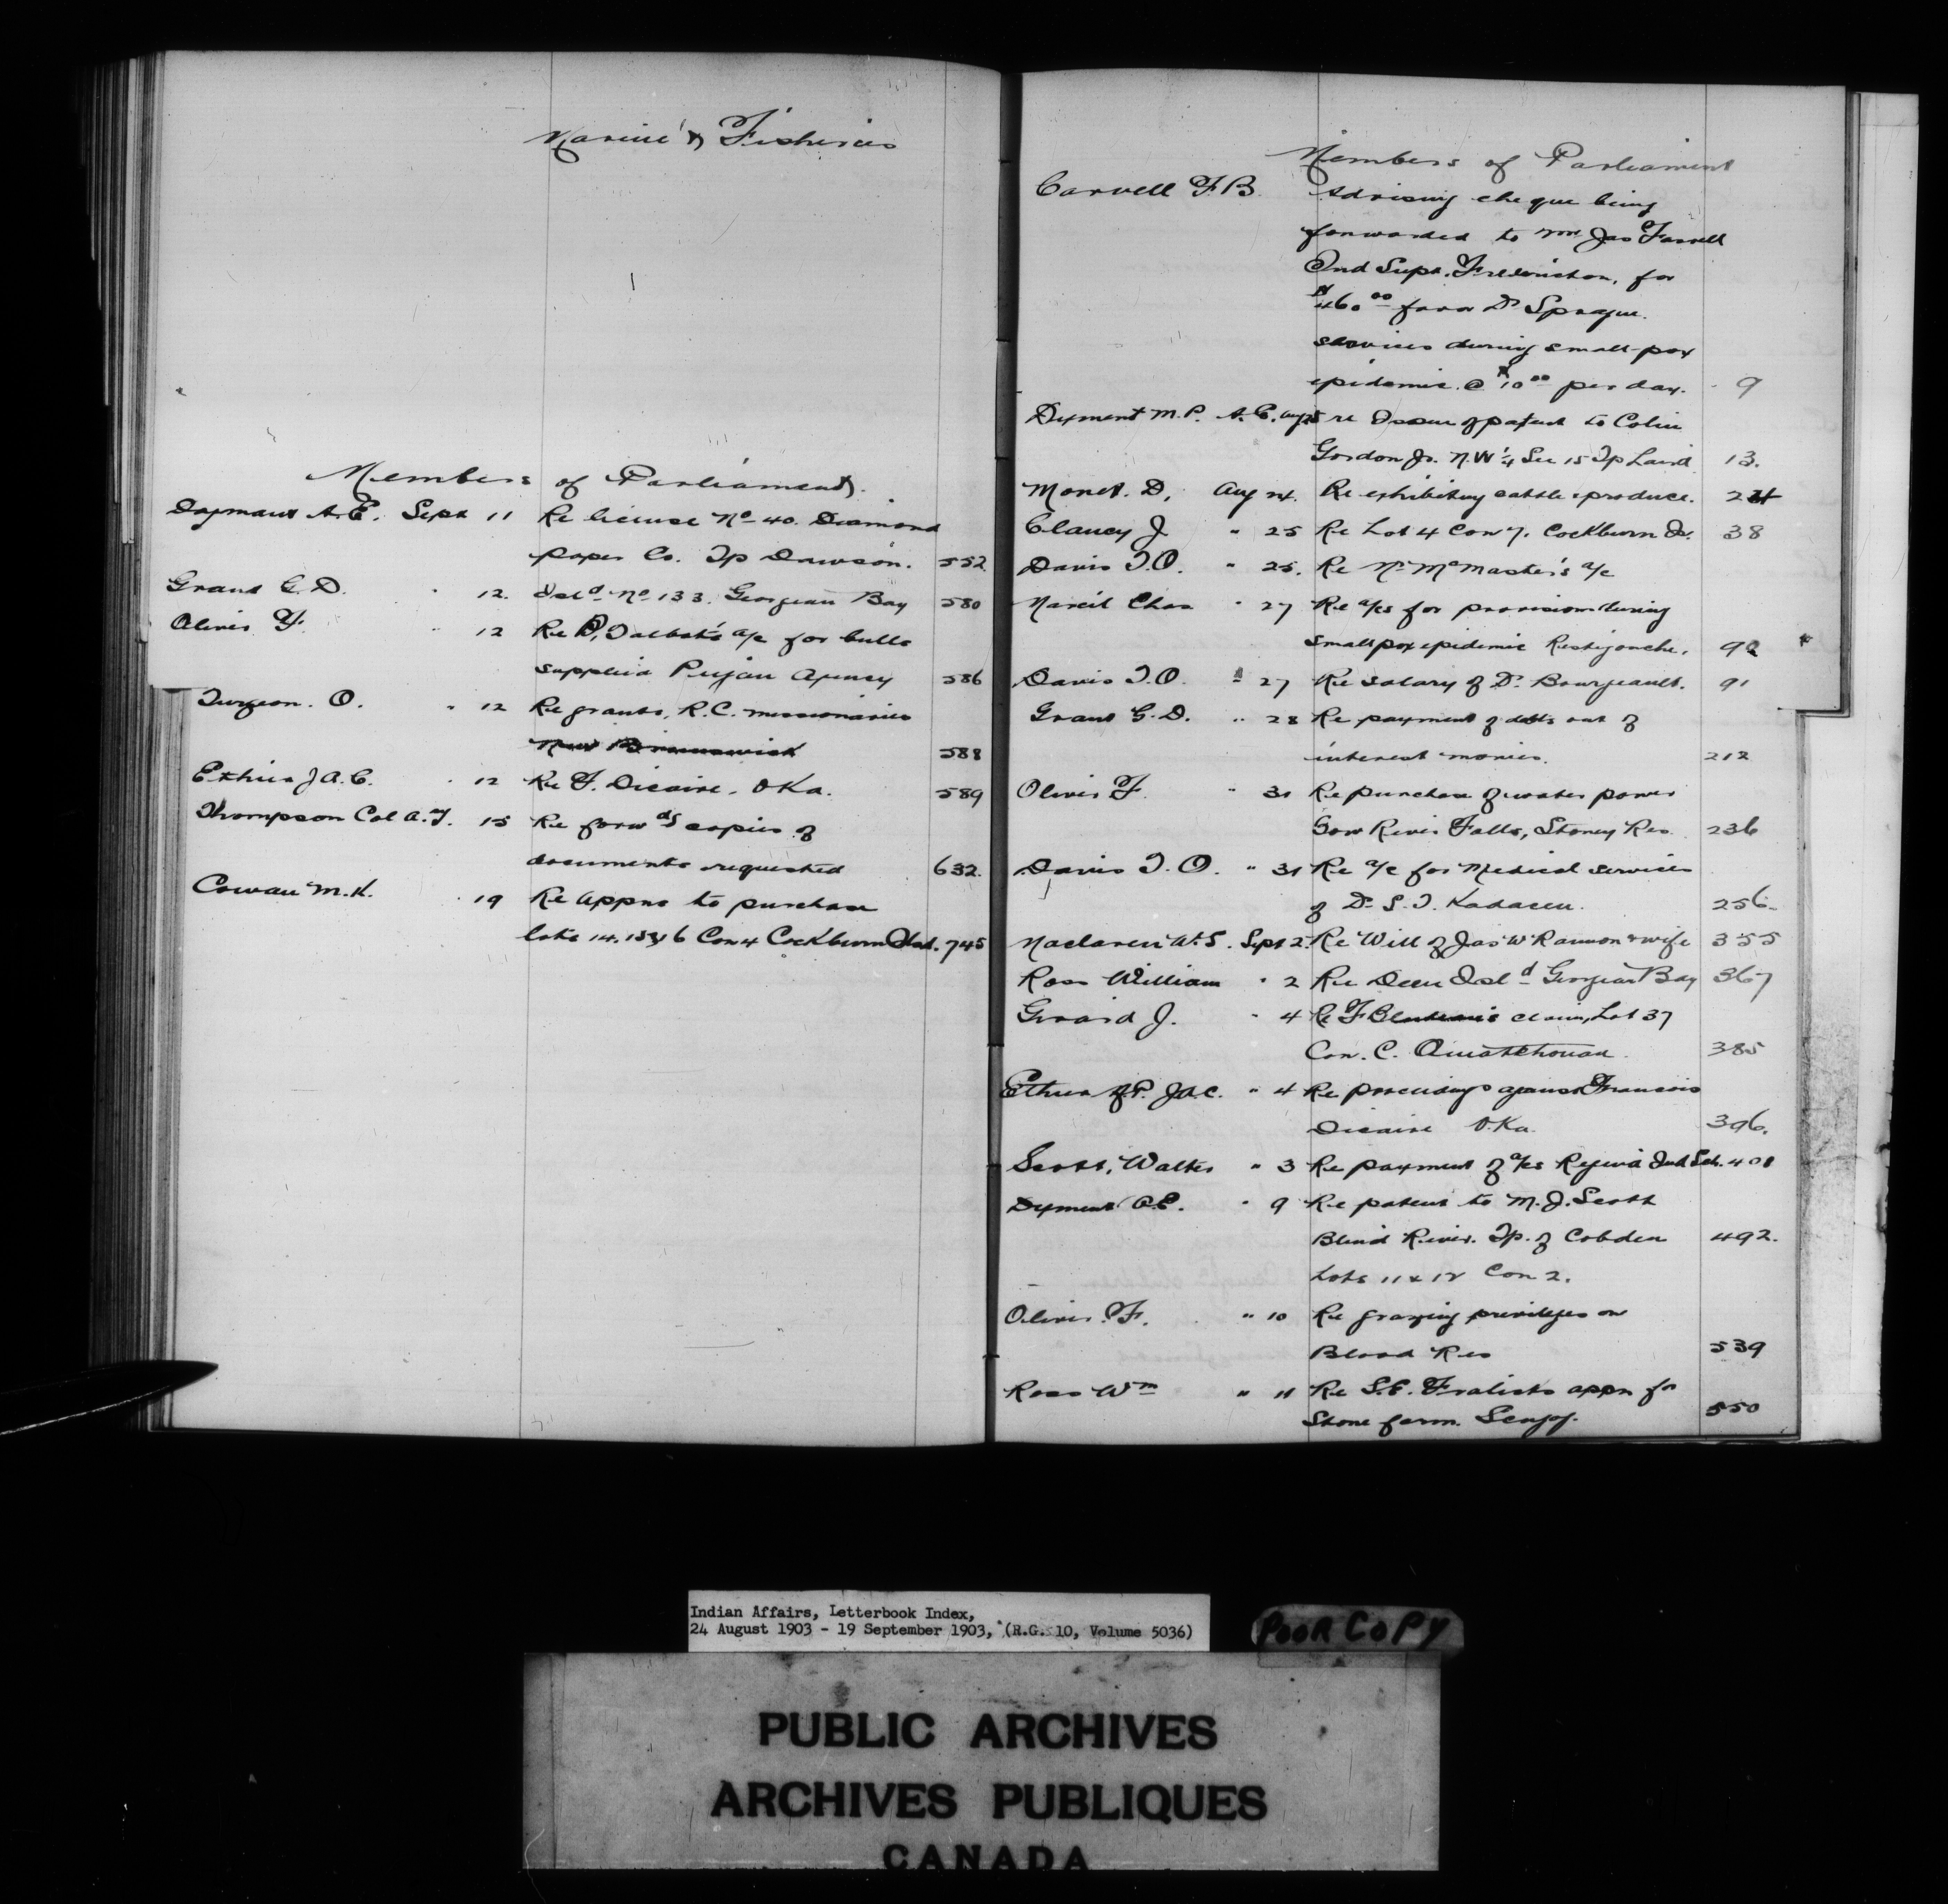 Marine & Fisheries
Members of Parliament
Dayment A.E. Sept 11 Re license No 40. Diamond
paper Co. Tp Dawson. 552
Grant G. D. " 12. Isld No 133. Georgian Bay 580
Oliver F. " 12 Re P. Talbot's a/c for bulls
supplied Peigan Agency 586
Turgeon. O. " 12 Re grants, R.C. missionaries
New Brunswick 588
Ethier J A. C. " 12 Re F. Dicaire, Oka. 589
Thompson Col A. T. 15 Re forwdg copies of
documents requested 632.
Cowan M.K. " 19 Re appns to purchase
lots 14, 15 & 16 Con 4 Cockburn Isld. 745
Members of Parliament
Carvell F. B. Advising cheque being
forwarded to Mr Jas Farrell
Ind Supt. Fredericton, for
$460 00 favor Dr Sprague.
services during small-pox
epidemic @ $10 00 per day. 9
Dyment M.P. A. E. Aug 25 re Issue of patent to Colin
Gordon Jr. N.W 1/4 Sec 15 Tp Laird 13.
Monet. D, Aug 24. Re exhibiting cattle & produce. 24
Clancy J " 25 Re Lot 4 Con 7. Cockburn Is. 38
Davis T. O. " 25. Re N. McMaster's a/c
Marcil Chas " 27 Re a/cs for provisions during
smallpox epidemic Restigouche. 92
Davis T. O. " 27 Re salary of Dr. Bourgeault. 91
Grant G. D. " 28 Re payment of debts out of
interest monies. 212
Oliver F. " 31 Re purchase of water power
Bow River Falls, Stoney Res. 236
Davis T. O. " 31 Re a/c for Medical services
of Dr S. T. 256.
Maclaren A. S. Sept 2. Re Will of Jas W Rannon & wife 355
Ross William " 2 Re Deer Isld Georgian Bay 367
Girard J. " 4 Re F claim, Lot 37
Con. C. Ouiatchouan. 385
Ethier M.P. J A. C. " 4 Re proceedings against Francois
Dicaire Oka. 396.
Scott, Walter " 3 Re payment of a/cs Regina Ind Sch. 401
Dyment A.E. " 9 Re patent to M. J. Scott
Blind River. Tp. of Cobden 492.
Lots 11 & 12 Con 2.
Oliver. F. " 10 Re grazing privileges on
Blood Res 539
Ross Wm " 11 Re S. E. Fralick's appn for
Stone farm. Scugog. 550
Indian Affairs, Letterbook Index,
24 August 1903 - 19 September 1903, (R.G. 10, Volume 5036)
POOR COPY
PUBLIC ARCHIVES
ARCHIVES PUBLIQUES
CANADA